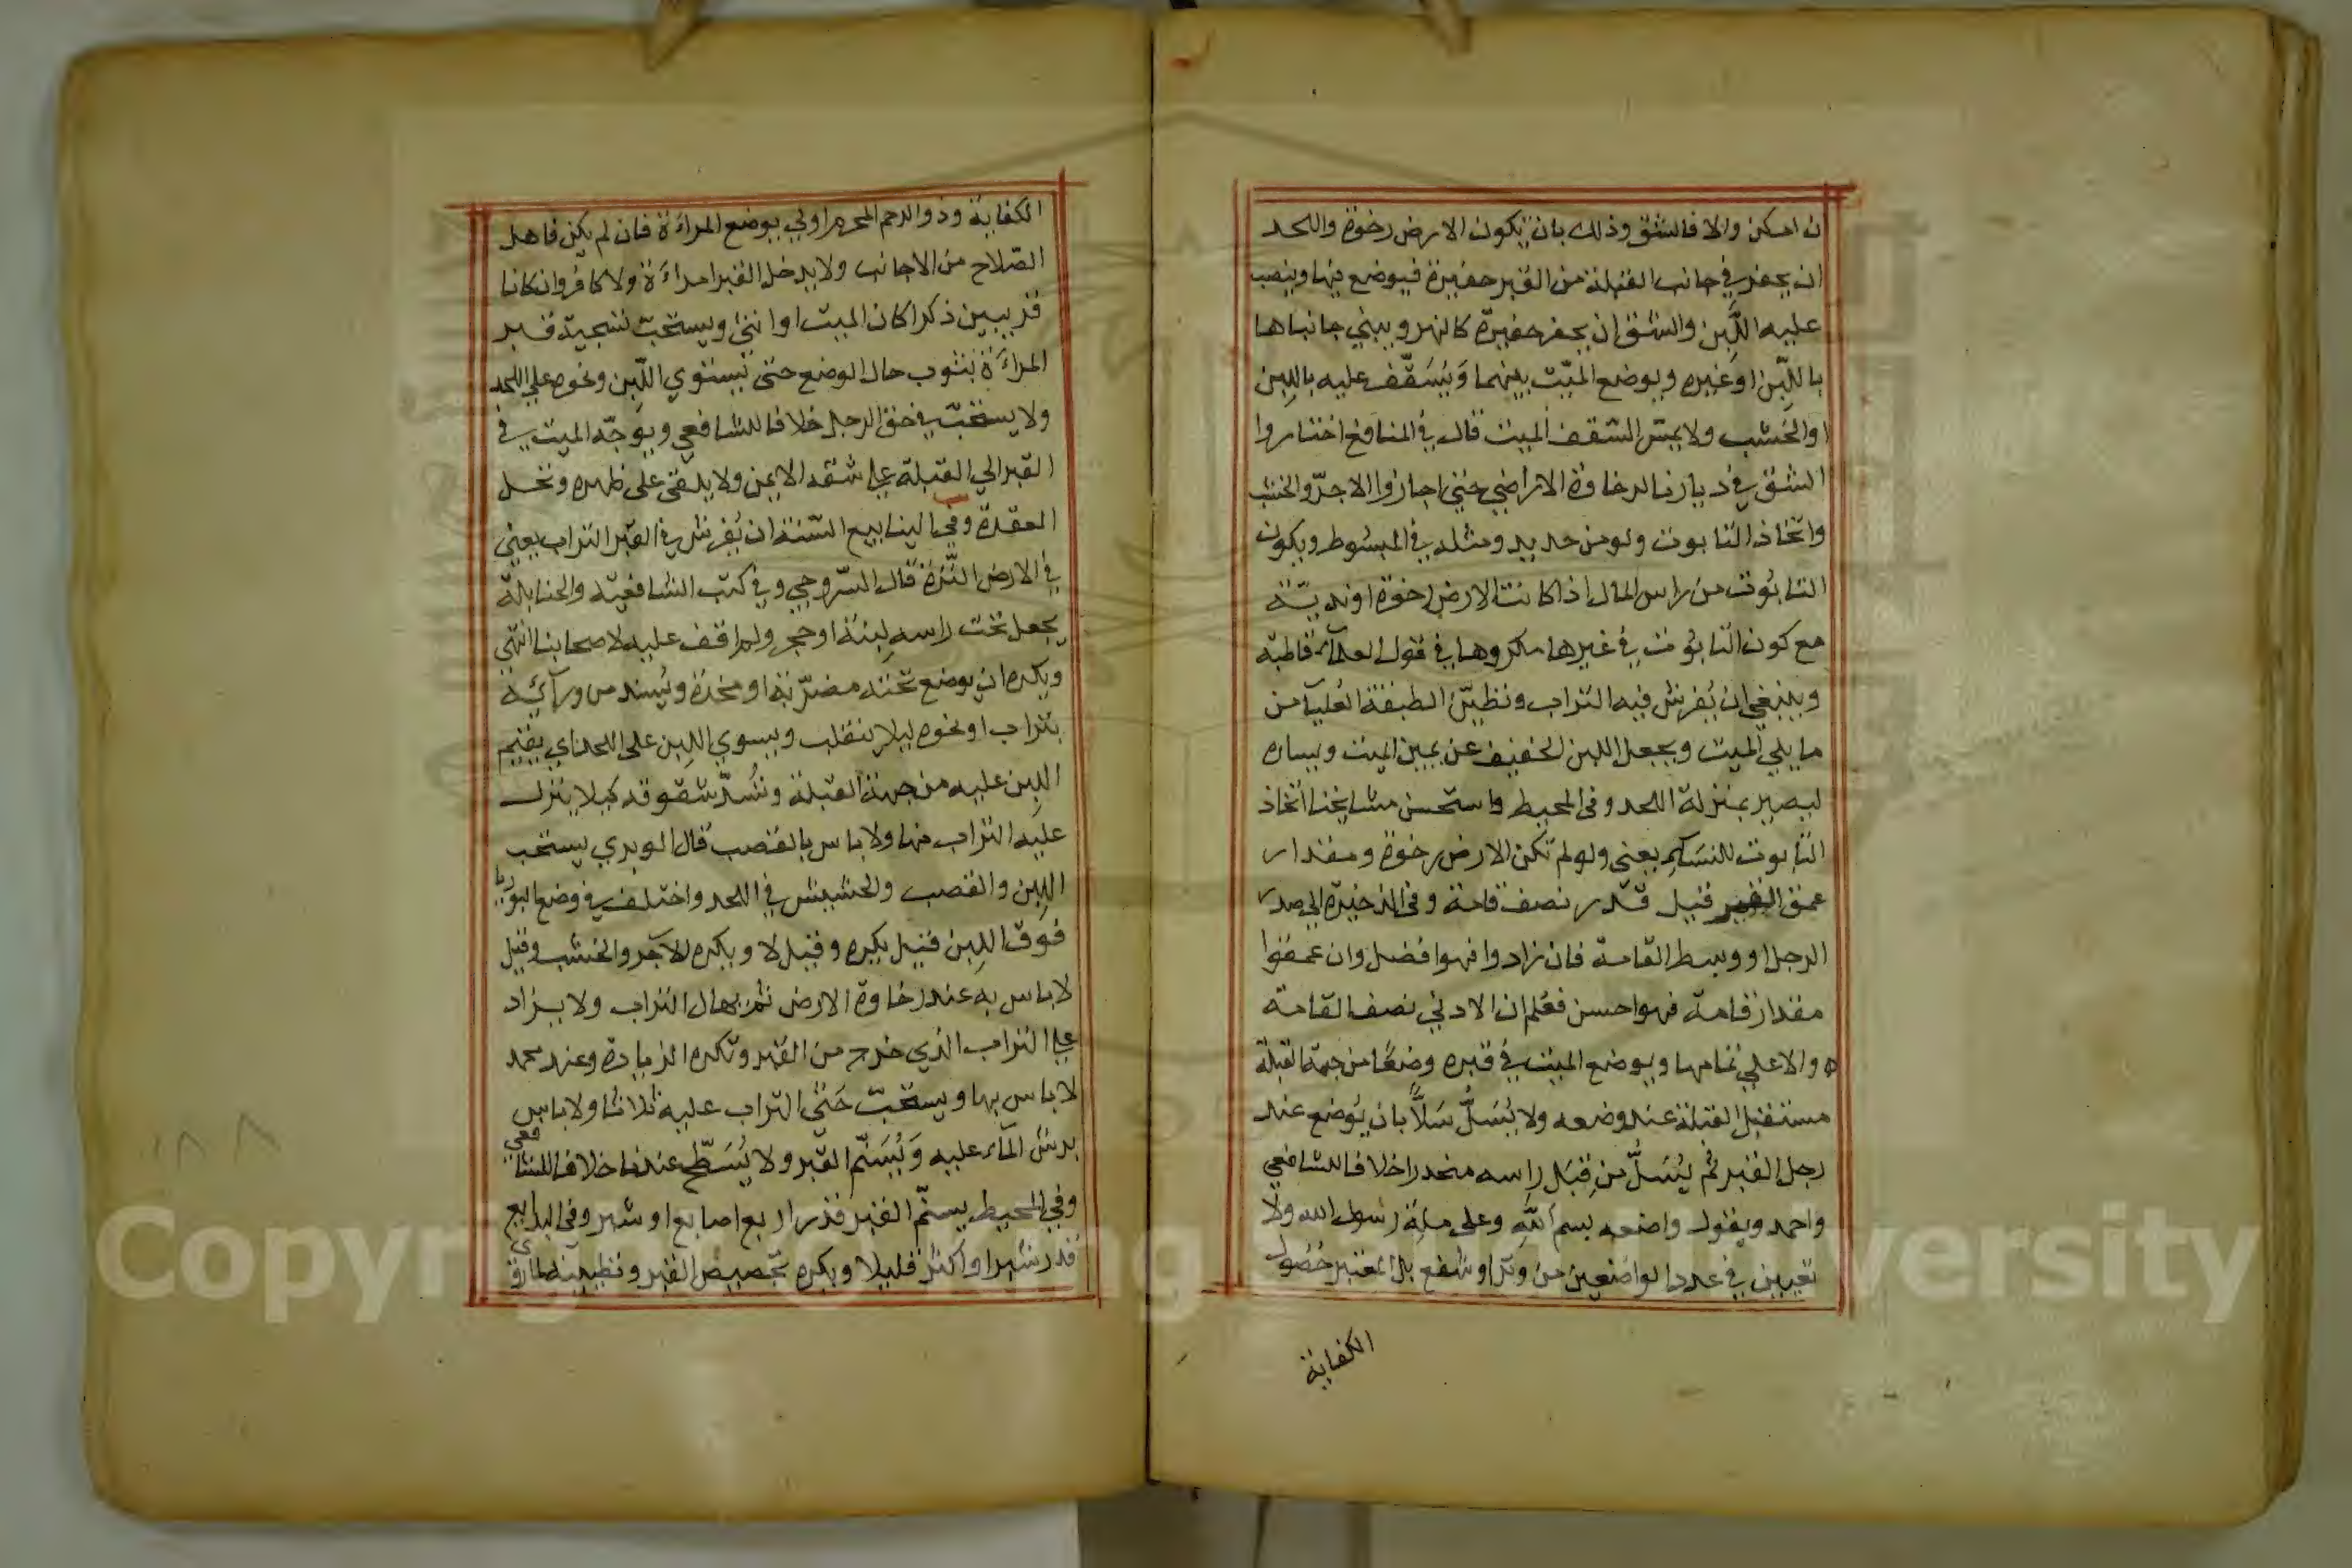 ان امكن والا فالشق وذلك بان يكون الارض رخوة واللحد
ان يحفر في جانب القبلة من القبر حفيرة فيوضع فيها وينصب
عليه اللَّبِن والشق ان يحفر حفيرة كالنهر ويبني جانباها
باللّبن او غيره ويوضع الميّت بينهما وَيُسَقّف عليه باللبن
او الخشب ولا يمسّ السقف الميت قال في المنافع اختاروا
الشق في ديارنا لرخاوة الاراضي حتي اجازوا الاجرّ والخشب
واتخاذ التابوت ولو من حديد ومثله في المبسوط ويكون
التابُوت من راس المال اذا كانت الارض رخوة او نديّة
مع كون التابُوت في غيرها مكروها في قول العلمآء قاطبة
وينبغي ان يُفرش فيه التراب وتطيّن الطبقة العُليآ من
ما يلي الميت ويجعل اللبن الخفيف عن يمين الميت ويساره
ليصير بمنزلة اللحد وفي المحيط واستحسن مشايخنا اتخاذ
التابوت للنسآء يعني ولو لم تكن الارض رخوة ومقدار
عمق القبر قيل قدر نصف قامة وفي الذخيرة الي صدر
الرجل او وسط القامة فان زادوا فهو افضل وان عمقوا
مقدار قامة فهو احسن فعُلم ان الادني نصف القامة
والاعلي تمامها ويوضع الميت في قبره وضعًا من جهة القبلة
مستقبل القبلة عند وضعه ولا يُسَلُّ سَلًّا بان يُوضع عند
رجل القبر ثم يُسَلُّ من قِبَل راسه منحدرا خلافا للشافعي
واحمد ويقول واضعه بسم الله وعلى ملة رسول الله ولا
تعيين في عدد الواضعين من وتر او شفع بل المعتبر حُصُول
الكفاية
الكفاية وذو الرحم المحرم اولي بوضع المراءة فان لم يكن فاهل
الصّلاح من الاجانب ولا يدخل القبر امراءة ولا كافر وان كانا
قريبين ذكرا كان الميت او انثي ويستحبّ تسجية قبر
المراءة بثوب حال الوضع حتي يستوي اللّبن ونحوه علي اللحد
ولا يستحبّ في حق الرجل خلافا للشافعي ويوجّه الميت في
القبر الي القبلة علي شقه الايمن ولا يلقى على ظهره وتحل
العقدة وفي الينابيع السّنة ان يُفرش في القبر التراب يعني
في الارض النّزة قال السّروجي وفي كتب الشافعيّه والحنابلة
يجعل تحت راسه لبنة او حجر ولم اقف عليه لاصحابنا انتهي
ويكره ان يوضع تحته مضرّبة او مخدّة ويُسند من ورآئه
بتراب او نحوه ليلا ينقلب ويسوي اللبن على اللحد اي يقيم
اللبن عليه من جهة القبلة وتُسَدّ شقوقه كيلا ينزل
عليه التراب منها ولا باس بالقصب قال الوبري يستحب
اللبن والقصب والحشيش في اللحد واختلف في وضع البوريا
فوق اللبن فقيل يكره وقيل لا ويكره الآجر والخشب وقيل
لا باس به عند رخاوة الارض ثم يهال التراب ولا يزاد
علي التراب الذي خرج من القبر وتكره الزيادة وعند محمد
لا باس بها ويستحبّ حَثي التراب عليه ثلاثا ولا باس
برش المآء عليه وَيُسَنّم القبر ولا يُسَطّح عندنا خلافا للشافعي
وفي المحيط يسنّم القبر قدر اربع اصابع او شبر وفي البدايع
قدر شبر او اكثر قليلا ويكره تجصيص القبر وتطيينه